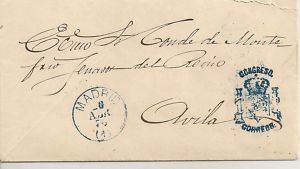 Excmo Sr Conde de Monte
frío Senador del Reino
Avila
MADRID
8
ABR
79
(1)
CONGRESO
CORREOS